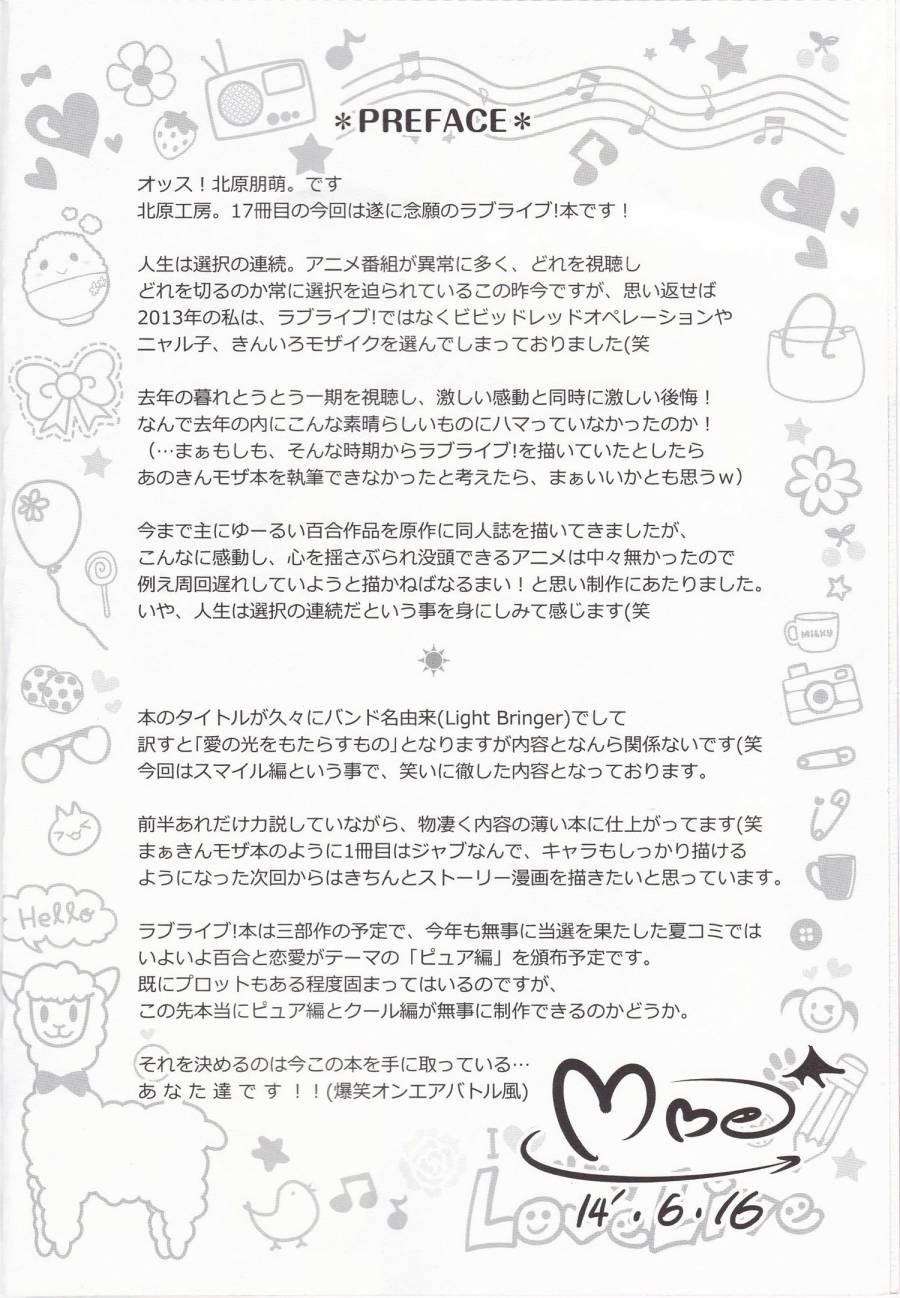 *PREFACE*
オッス！北原朋萌。です
北原工房。17冊目の今回は遂に念願のラブライブ!本です！
人生は選択の連続。アニメ番組が異常に多く、どれを視聴し
どれを切るのか常に選択を迫られているこの昨今ですが、思い返せば
2013年の私は、ラブライブ!ではなくビビッドレッドオペレーションや
ニャル子、きんいろモザイクを選んでしまっておりました(笑
去年の暮れとうとう一期を視聴し、激しい感動と同時に激しい後悔！
なんで去年の内にこんな素晴らしいものにハマっていなかったのか！
（…まぁもしも、そんな時期からラブライブ!を描いていたとしたら
あのきんモザ本を執筆できなかったと考えたら、まぁいいかとも思うｗ）
今まで主にゆーるい百合作品を原作に同人誌を描いてきましたが、
こんなに感動し、心を揺さぶられ没頭できるアニメは中々無かったので
例え周回遅れしていようと描かねばなるまい！と思い制作にあたりました。
いや、人生は選択の連続だという事を身にしみて感じます(笑
MILKY
本のタイトルが久々にバンド名由来(Light Bringer)でして
訳すと｢愛の光をもたらすもの｣となりますが内容となんら関係ないです(笑
今回はスマイル編という事で、笑いに徹した内容となっております。
前半あれだけ力説していながら、物凄く内容の薄い本に仕上がってます(笑
まぁきんモザ本のように1冊目はジャブなんで、キャラもしっかり描ける
ようになった次回からはきちんとストーリー漫画を描きたいと思っています。
Hello
ラブライブ!本は三部作の予定で、今年も無事に当選を果たした夏コミでは
いよいよ百合と恋愛がテーマの「ピュア編」を頒布予定です。
既にプロットもある程度固まってはいるのですが、
この先本当にピュア編とクール編が無事に制作できるのかどうか。
それを決めるのは今この本を手に取っている…
あ な た 達 で す ！！(爆笑オンエアバトル風)
I
LoveLive
14'.6.16